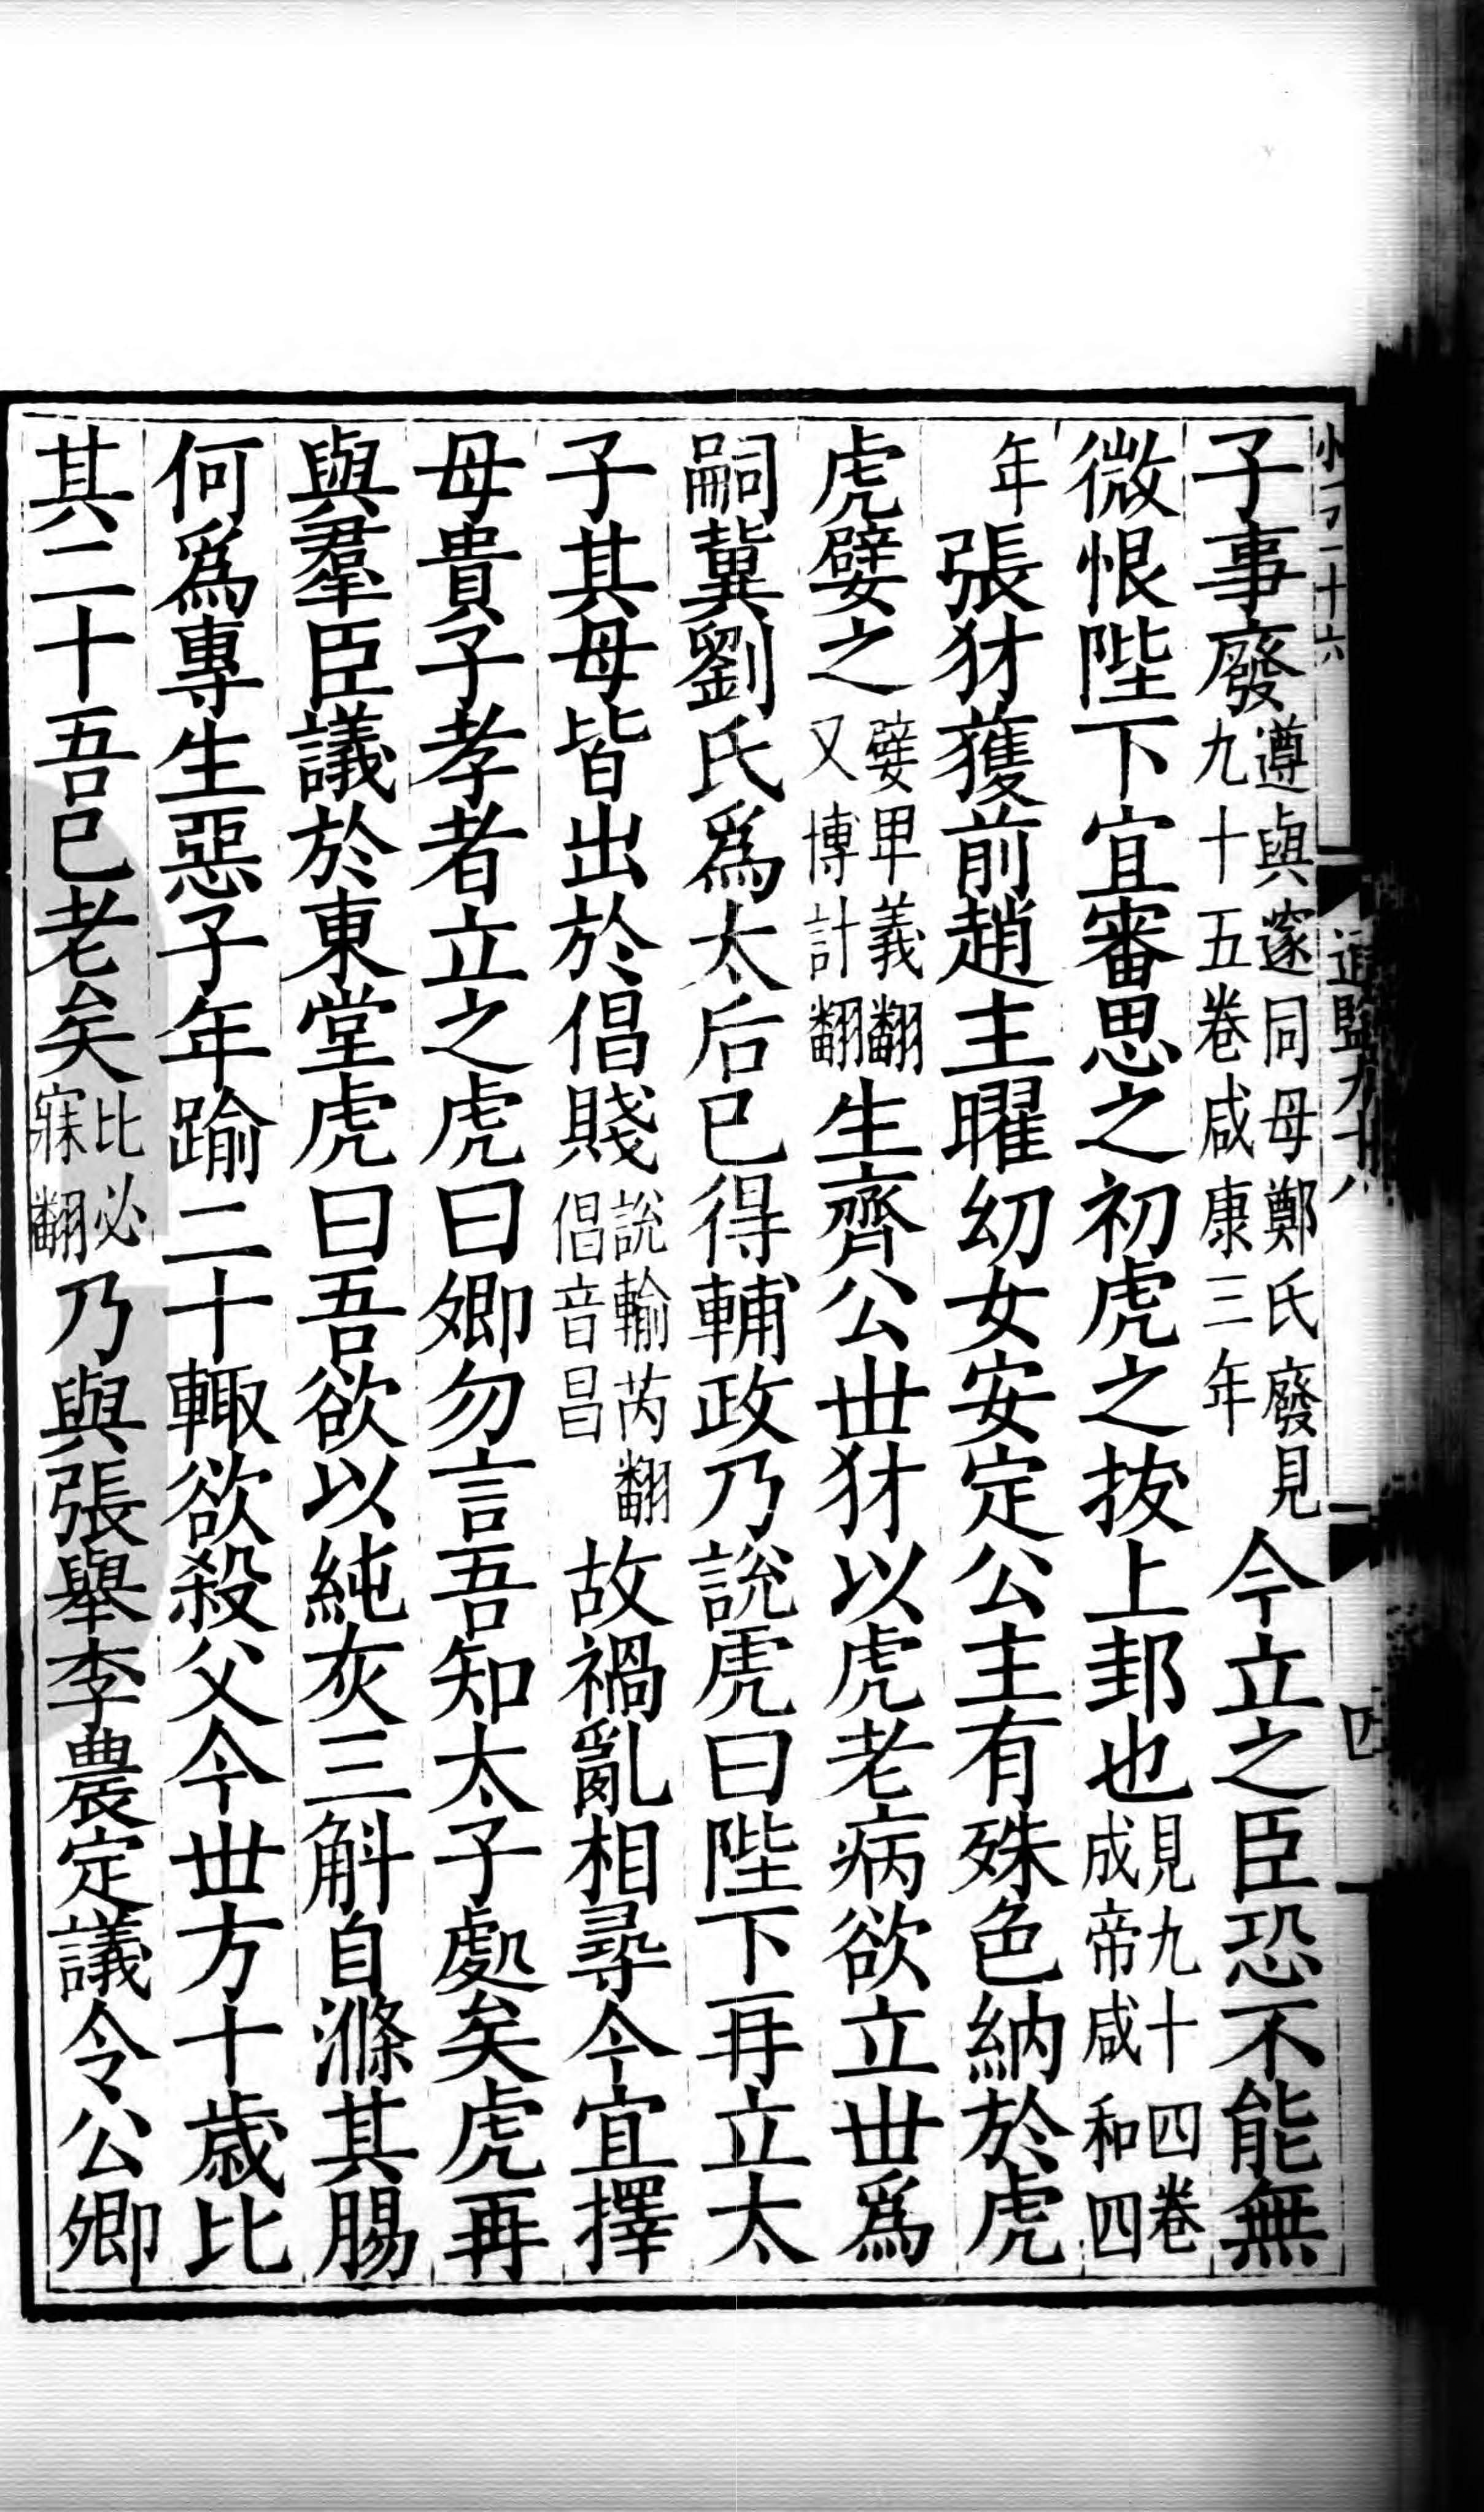 子事廢遵與邃同母鄭氏廢見九十五卷咸康三年今立之臣恐不能無
微恨陛下宜審思之初虎之拔上邽也見九十四卷成帝咸和四
年張豺獲前趙主曜幼女安定公主有殊色納於虎
虎嬖之嬖甲義翻又博計翻生齊公世豺以虎老病欲立世爲
嗣冀劉氏爲太后已得輔政乃說虎曰陛下再立太
子其母皆出於倡賤說輸芮翻倡音昌故禍亂相尋今宜擇
母貴子孝者立之虎曰卿勿言吾知太子處矣虎再
與羣臣議於東堂虎曰吾欲以純灰三斛自滌其腸
何爲專生惡子年踰二十輒欲殺父今世方十歲比
其二十吾已老矣比必寐翻乃與張舉李農定議令公卿